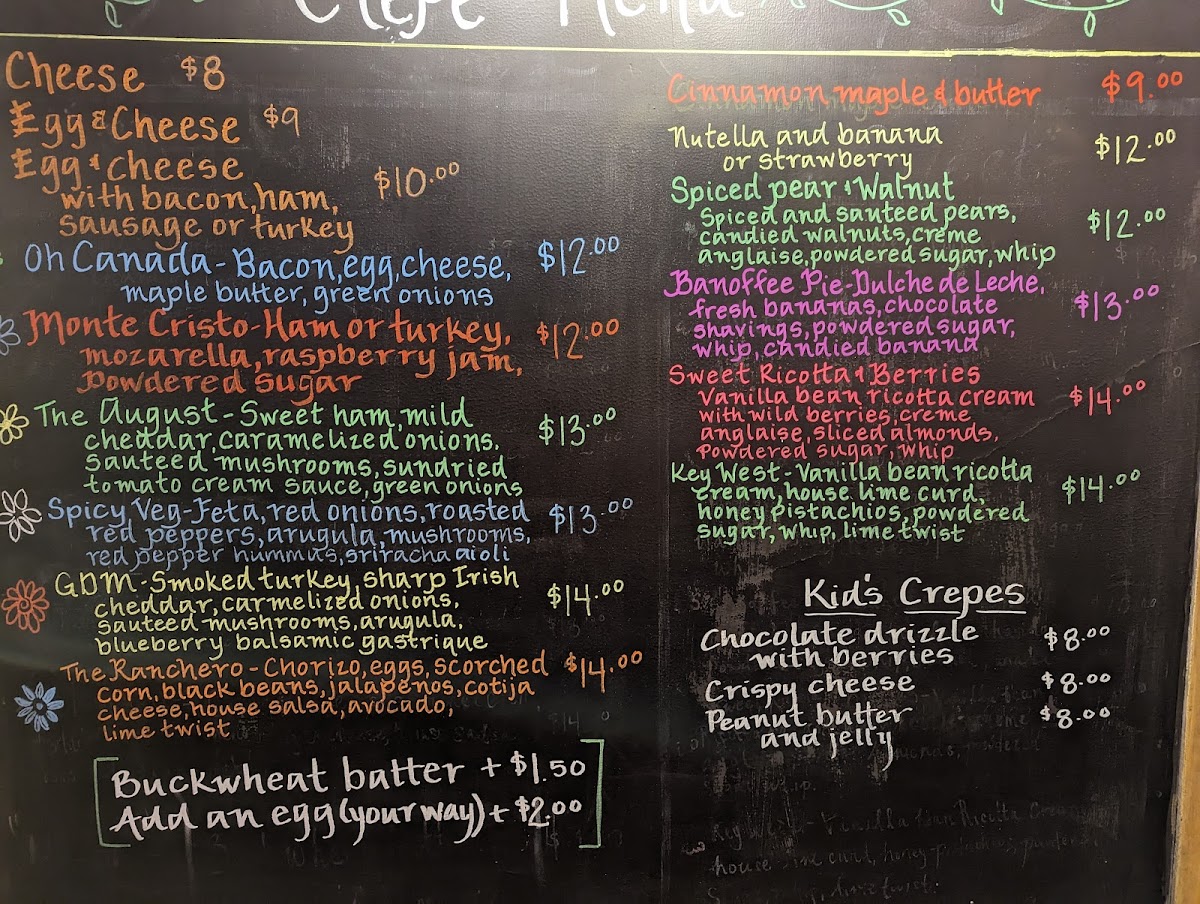 Crepe Menu
Cheese $8
Egg & Cheese $9
Egg & cheese
with bacon, ham, $10.00
sausage or turkey
Oh Canada - Bacon, egg, cheese, $12.00
maple butter, green onions
Monte Cristo - Ham or turkey, $12.00
mozarella, raspberry jam,
powdered sugar
The August - Sweet ham, mild $13.00
cheddar, caramelized onions,
sauteed mushrooms, sundried
tomato cream sauce, green onions
Spicy Veg - Feta, red onions, roasted $13.00
red peppers, arugula, mushrooms,
red pepper hummus, sriracha aioli
GDM - Smoked turkey, sharp Irish $14.00
cheddar, carmelized onions,
sauteed mushrooms, arugula,
blueberry balsamic gastrique
The Ranchero - Chorizo, eggs, scorched $14.00
corn, black beans, jalapeños, cotija
cheese, house salsa, avocado,
lime twist
Buckwheat batter + $1.50
Add an egg (your way) + $2.00
Cinnamon maple & butter $9.00
Nutella and banana $12.00
or strawberry
Spiced pear & Walnut
Spiced and sauteed pears, $12.00
candied walnuts, créme
anglaise, powdered sugar, whip
Banoffee Pie - Dulche de Leche, $13.00
fresh bananas, chocolate
shavings, powdered sugar,
whip, candied banana
Sweet Ricotta & Berries
Vanilla bean ricotta cream $14.00
with wild berries, creme
anglaise, sliced almonds,
powdered sugar, whip
Key West - Vanilla bean ricotta $14.00
cream, house lime curd,
honey pistachios, powdered
sugar, whip, lime twist
Kid's Crepes
Chocolate drizzle $8.00
with berries
Crispy cheese $8.00
Peanut butter $8.00
and jelly